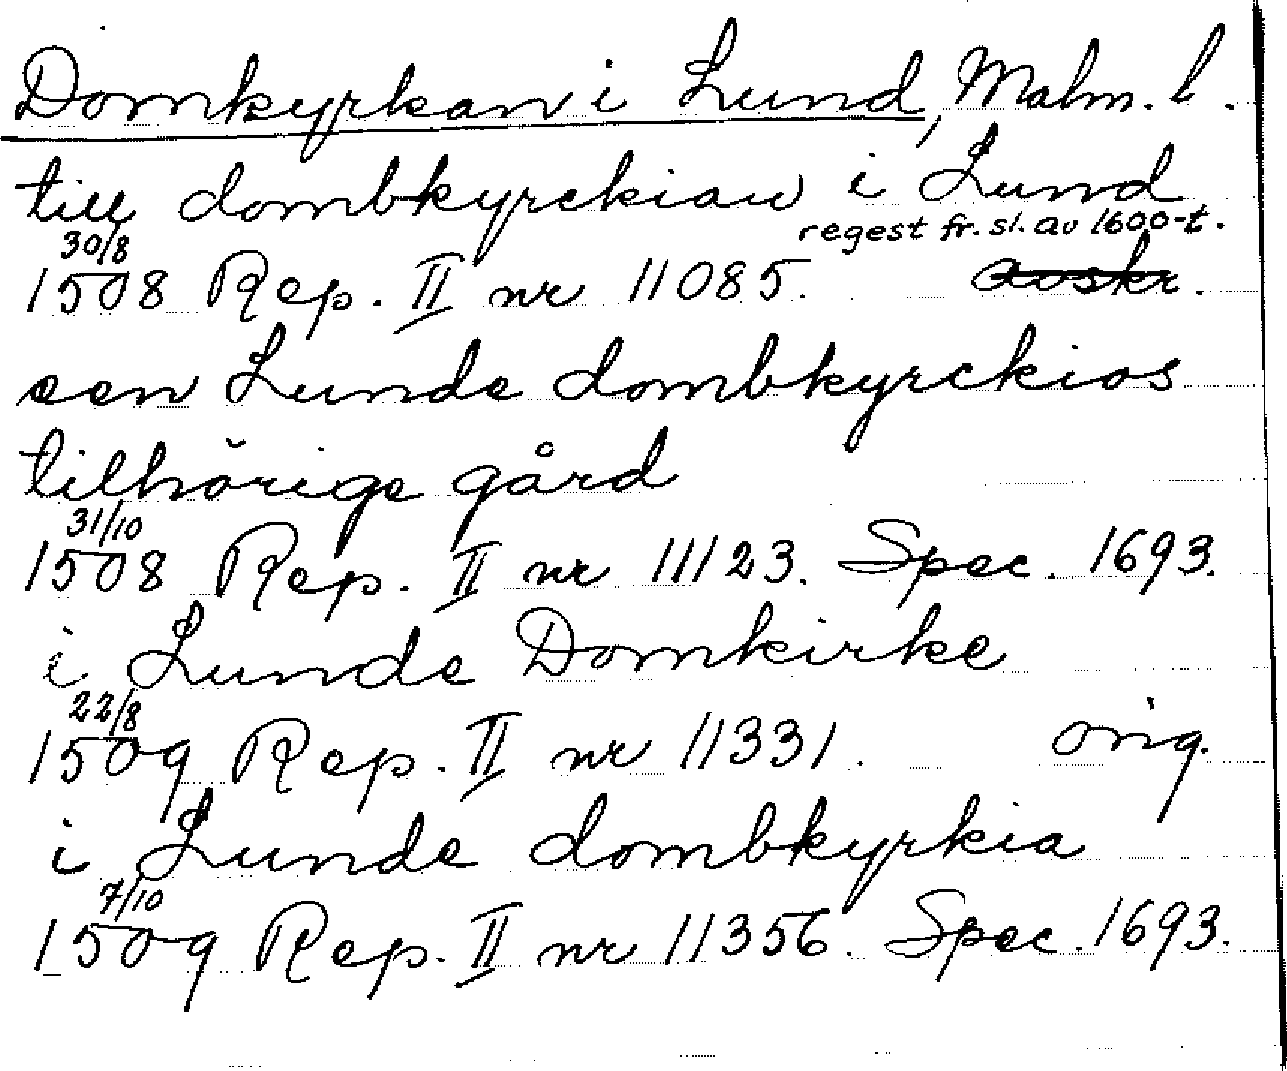 Domkyrkan i Lund, Malm. l.
till dombkyrckian i Lund
regest fr. sl. av 1600-t.
30/8
1508 Rep. II nr 11085. avskr.
een Lunde dombkyrckios
tilhörige gård
31/10
1508 Rep. II nr 11123. Spec. 1693.
i Lunde Domkirke
22/8
1509 Rep. II nr 11331. orig.
i Lunde dombkyrkia
7/10
1509 Rep. II nr 11356. Spec. 1693.